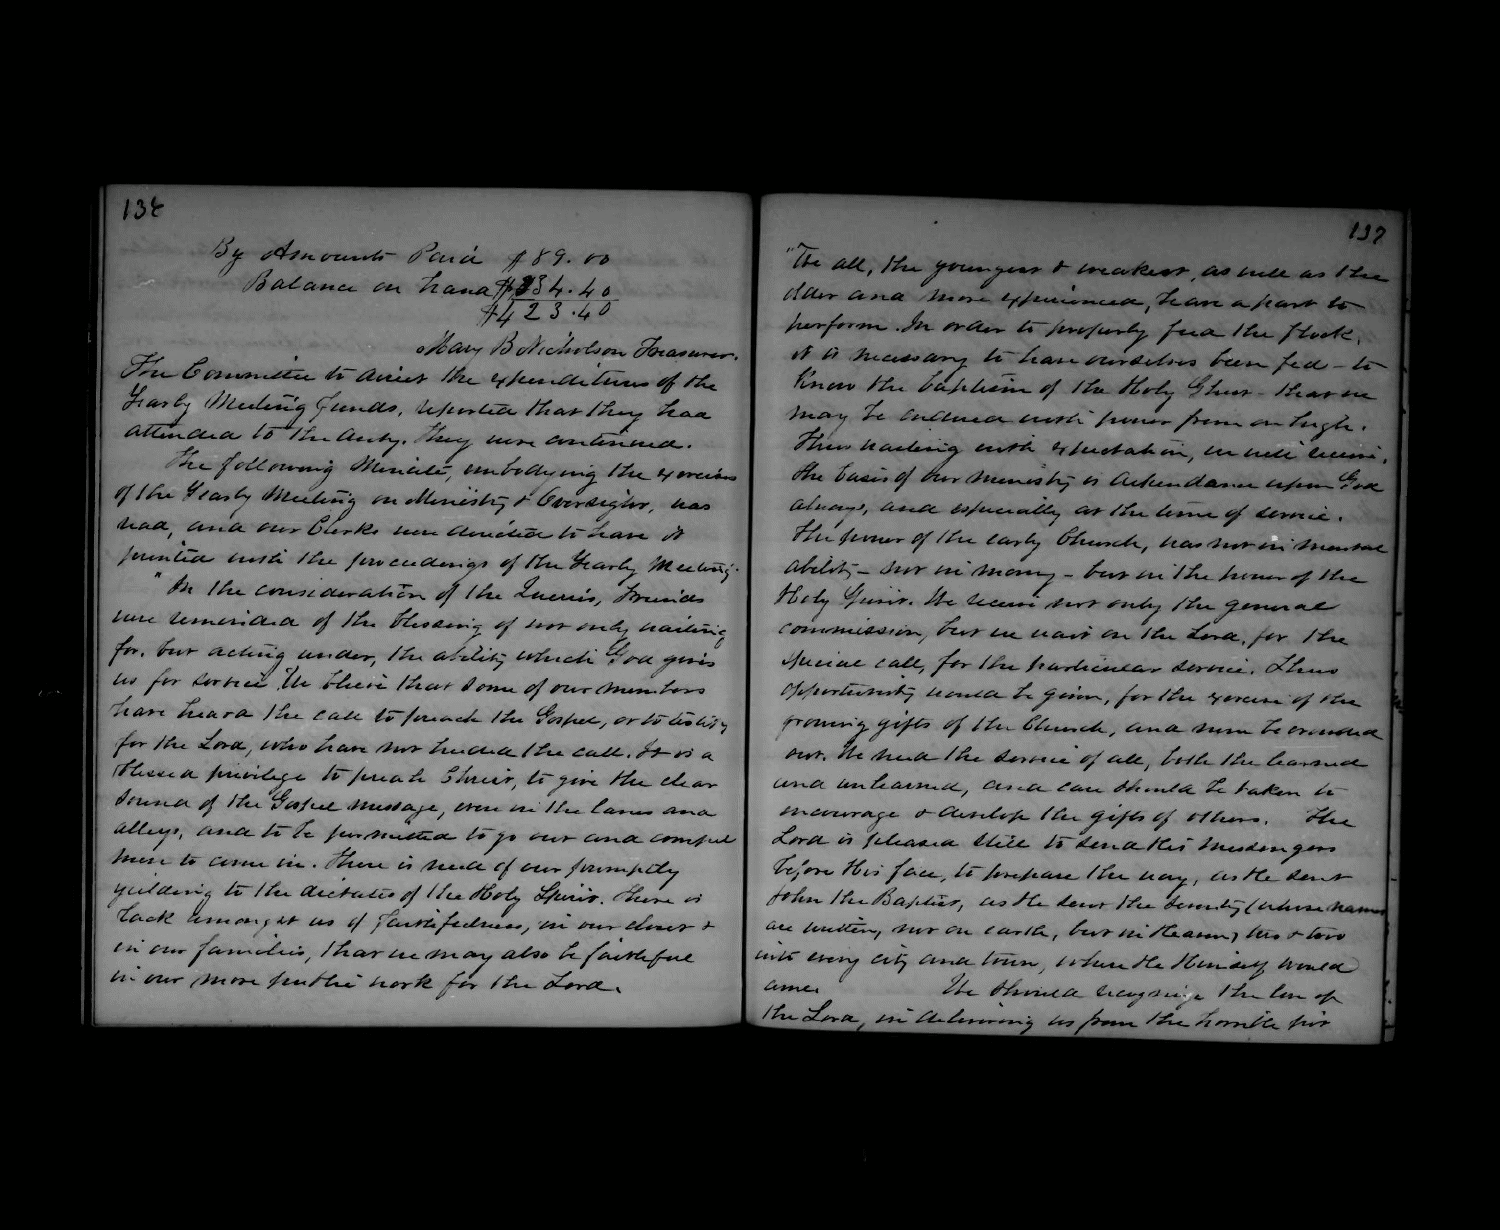 136
By Amounts Paid $89.00
Balance on hand $334.40
$423.40
Mary B Nicholson Treasurer.
The Committee to direct the expenditures of the
Yearly Meeting Funds, reported that they had
attended to the duty. They were continued.
The following Minute, embodying the exercises
of the Yearly Meeting on Ministry & Oversight, was
read, and our Clerks were directed to have it
printed with the proceedings of the Yearly Meeting.
"In the consideration of the Queries, Friends
were reminded of the blessing of not only waiting
for, but acting under, the ability which God gives
us for service. We believe that some of our members
have heard the call to preach the Gospel, or to testify
for the Lord, who have not heeded the call. It is a
blessed privilege to preach Christ, to give the clear
sound of the Gospel message, even in the lanes and
alleys, and to be permitted to go out and compel
men to come in. There is need of our promptly
yielding to the dictates of the Holy Spirit. There is
lack amongst us of faithfulness, in our closet &
in our families, that we may also be faithful
in our more public work for the Lord.
137
"We all, the youngest & weakest, as well as the
older and more experienced, have a part to
perform. In order to properly feed the flock,
it is necessary to have ourselves been fed - to
know the baptism of the Holy Ghost - that we
may be endued with power from on high.
Thus waiting with expectation, we will receive.
The basis of our ministry is attendance upon God
always, and especially at the time of service.
The power of the early Church, was not in mental
ability - not in money - but in the power of the
Holy Spirit. We receive not only the general
commission, but we wait on the Lord, for the
special call, for the particular service. Thus
opportunity would be given, for the exercise of the
growing gifts of the Church, and none be crowded
out. We need the service of all, both the learned
and unlearned, and care should be taken to
encourage & develop the gifts of others. The
Lord is pleased still to send his messengers
before His face, to prepare the way, as He sent
John the Baptist, as He sent the Seventy (whose names
are written, not on earth, but in Heaven) two & two
into every city and town, where He Himself would
come. We should recognize the love of
the Lord, in delivering us from the horrible pit